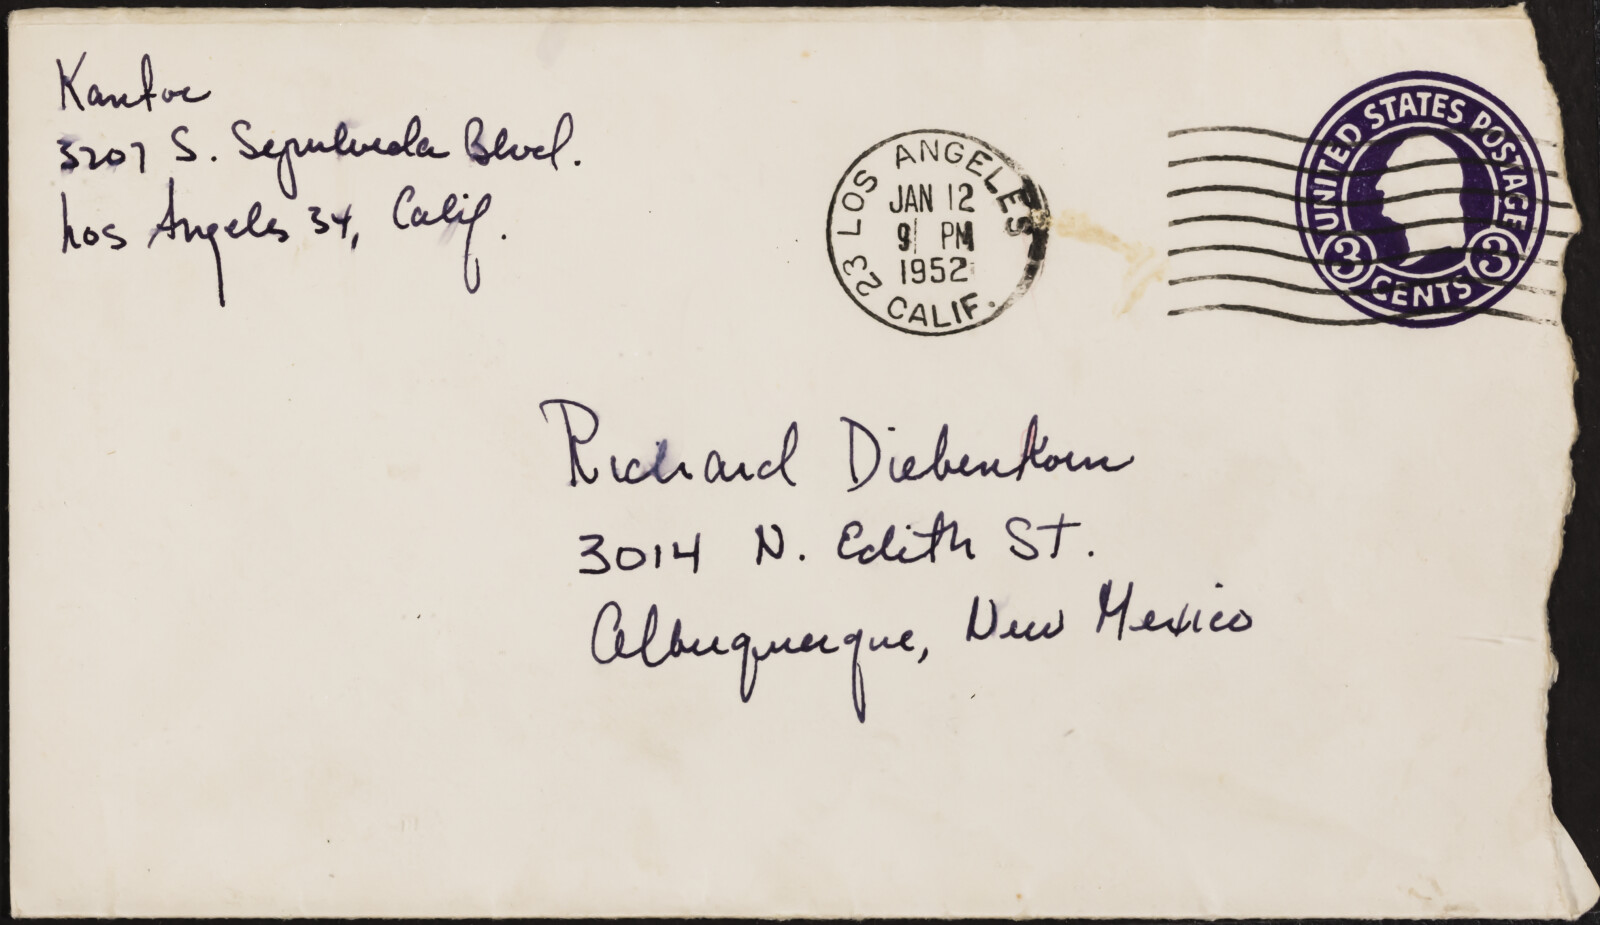 Kantor
3207 S. Sepulveda Blvd.
Los Angeles 34, Calif.
23 LOS ANGELES
JAN 12
9 PM
1952
CALIF.
UNITED STATES POSTAGE
3 CENTS 3
Richard Diebenkorn
3014 N. Edith St.
Albuquerque, New Mexico